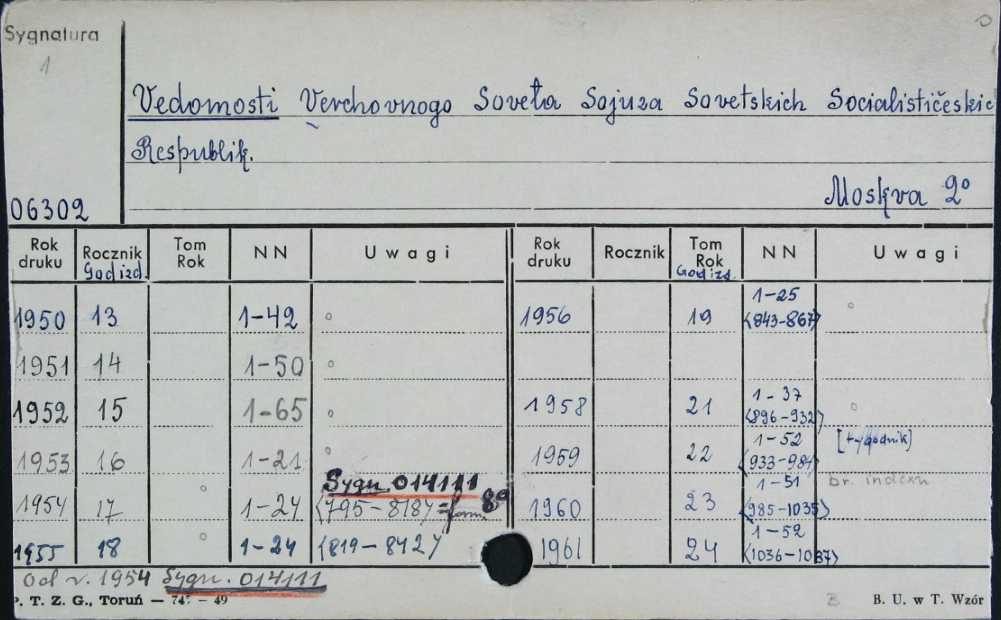 Sygnatura
1
Vedomosti Verchovnogo Soveta Sojuza Sovetskich Socialističeskic
Respublik.
Moskva 2°
06302
Rok druku Rocznik God izd. Tom Rok NN Uwagi Rok druku Rocznik Tom Rok God izd. NN Uwagi
1950 13 1-42 ° 1956 19 1-25 <843-867> °
1951 14 1-50 °
1952 15 1-65 ° 1958 21 1-37 <896-932> °
1953 16 1-21 ° 1959 22 1-52 <933-984> [tygodnik]
Sygn. 014111
1954 17 ° 1-24 <795-818> = form 89 1960 23 1-51 <985-1035> br. indexu
1955 18 ° 1-24 <819-842> 1961 24 1-52 <1036-1087>
Od r. 1954 Sygn. 014111
P. T. Z. G., Toruń — 747 — 49 B B. U. w T. Wzór